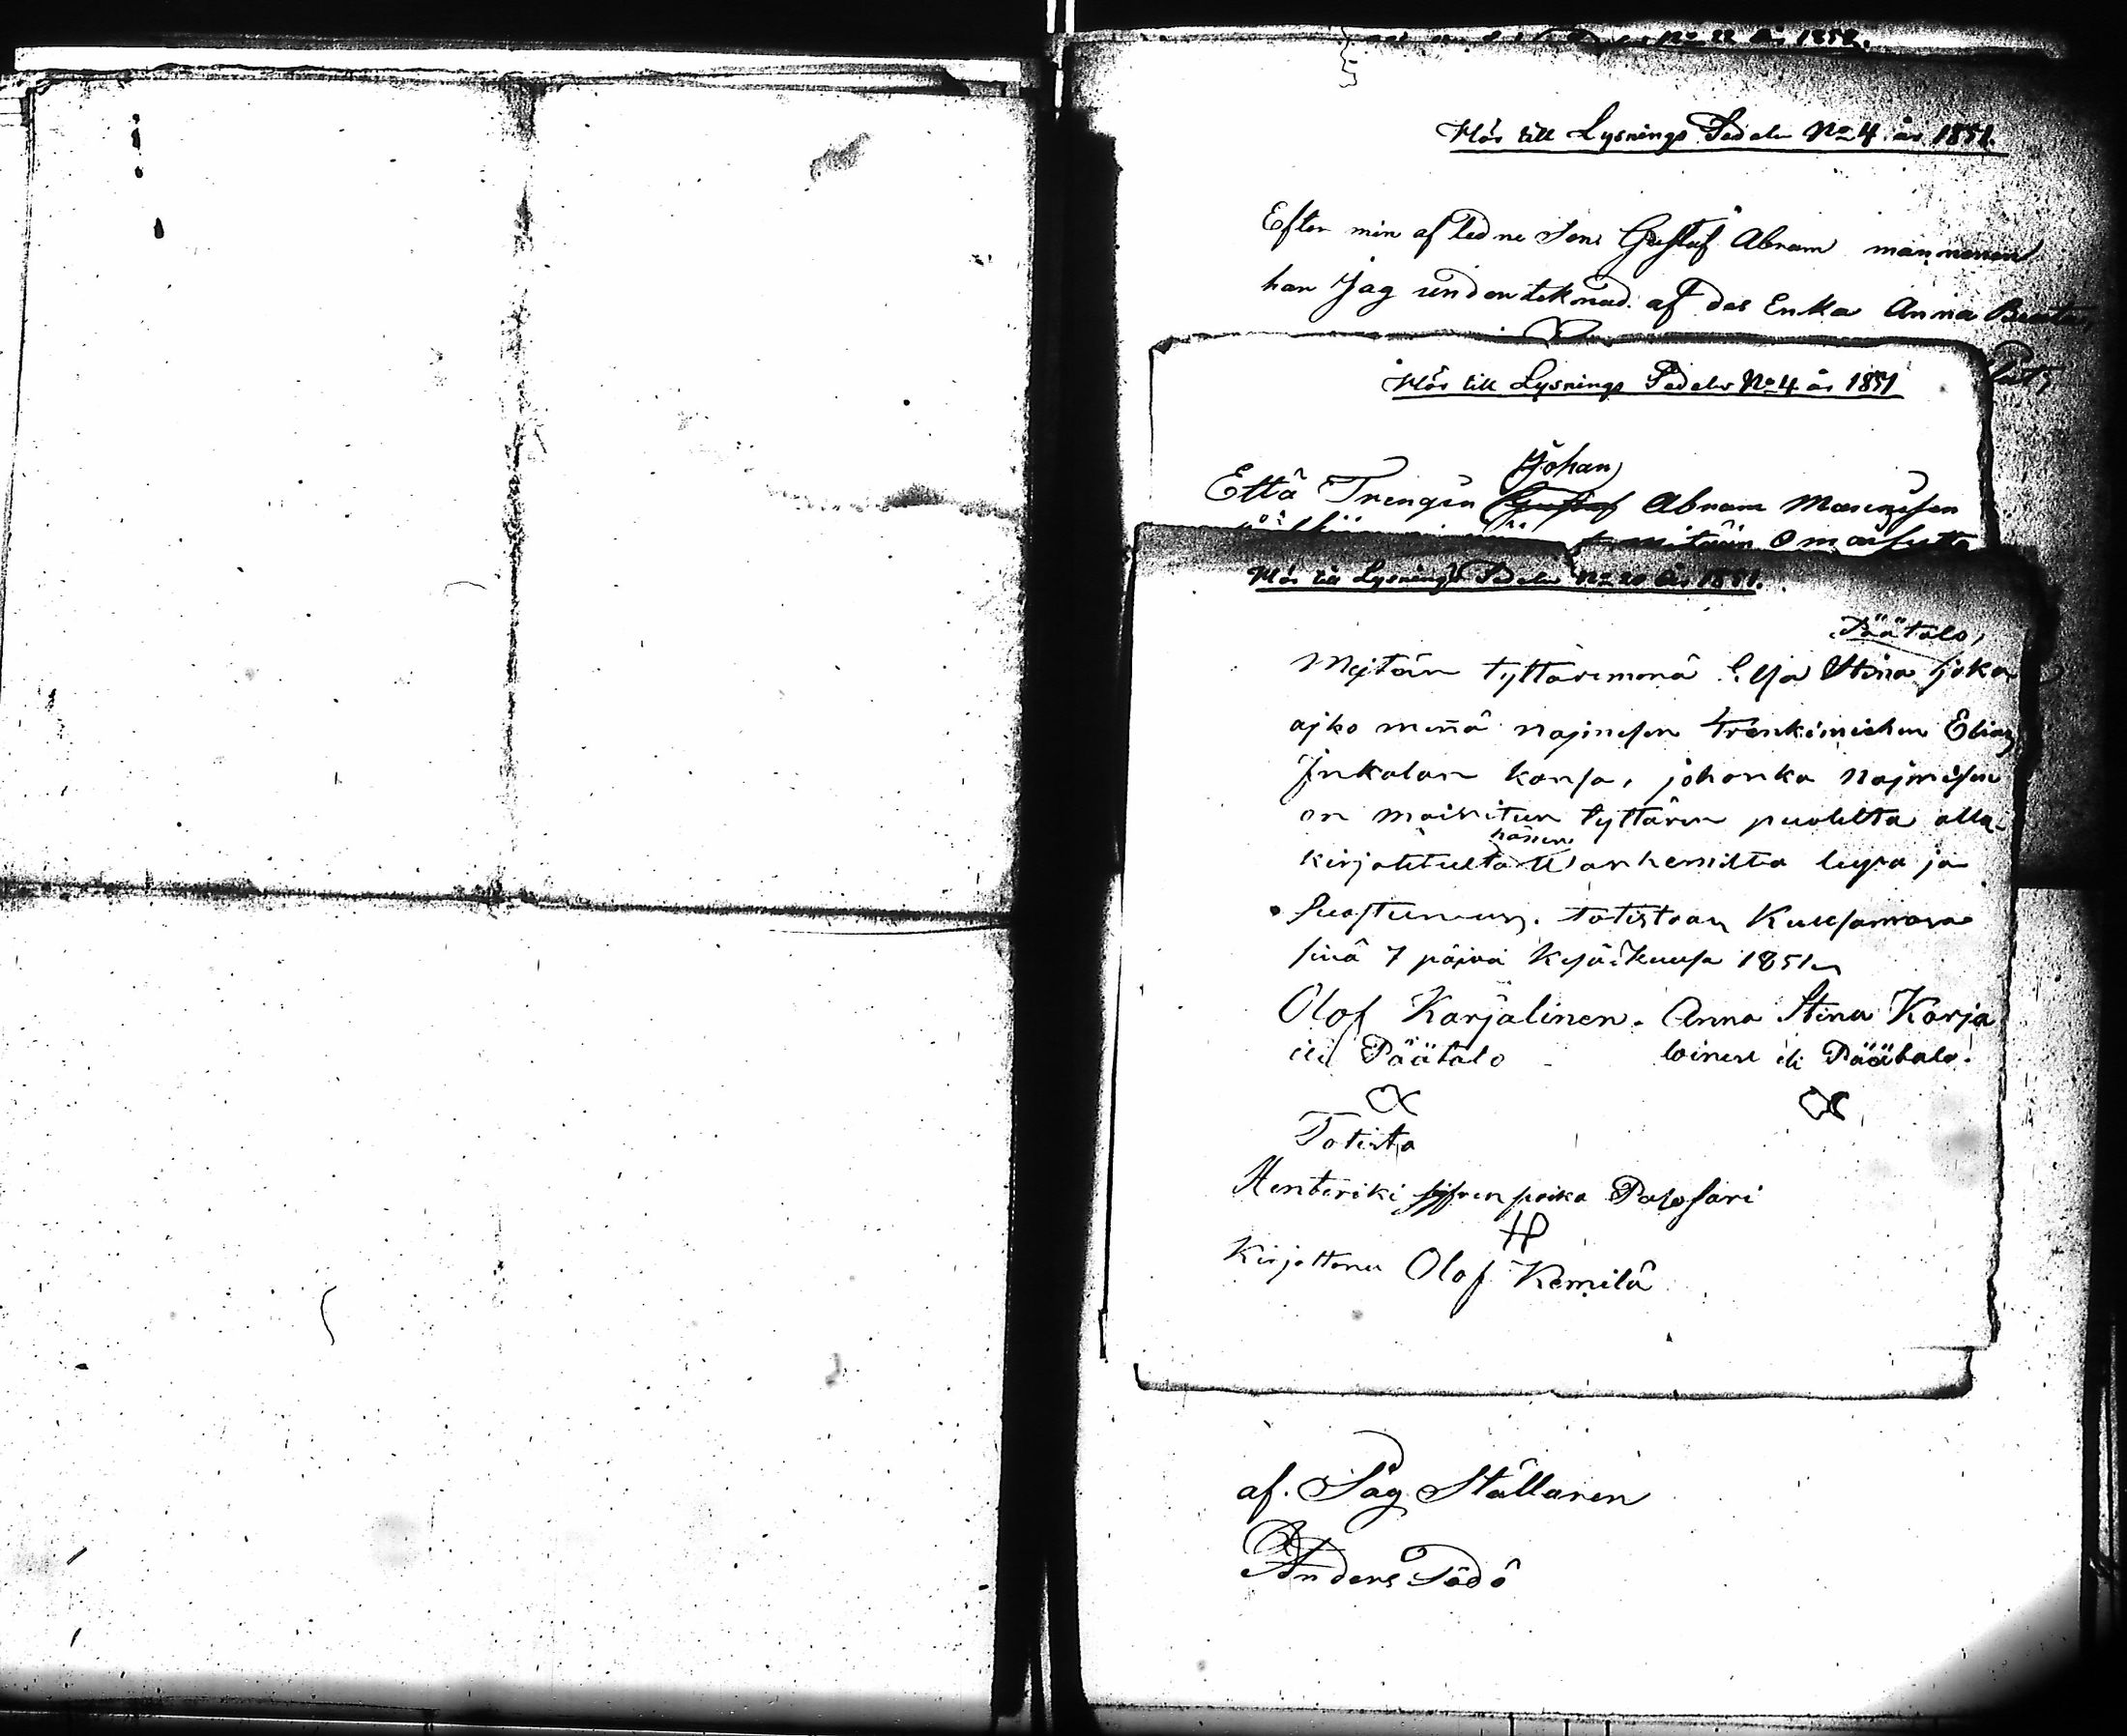 No 22 år 1852.
Hör till Lysnings Sedeln No 4. år 1851.
Efter min afledne Son Gustaf Abram mannenen
har Jag underteknad. af des Enka Anna Beata,
Hör till Lysnings Sedeln No 4 år 1851
Johan
Että Trengin Gustaf Abram Manesen
mitään Omaisutta
Hör till Lysnings Sedeln No 20 år 1851.
Päätalo,
Mejtän tyttäremmä Elsa Stina joka
ajko mennä najmisen trenkimiehen Elias
Inkalan kansa, johonka Najmisen
on mainitun tyttären puolelta alla-
hänen
kirjoitetuilta Wanhemilta lupa ja
suostumus. totistaan Kuusamossa
sinä 7 päivä Kesäkuusa 1851
Olof Karjalinen. Anna Stina Karja
eli Päätalo lainen eli Päätalo.
Totista
Henteriki poika Palosari
HP
Kirjottanu Olof Kemilä
af. Såg Ställaren
Anders Södö